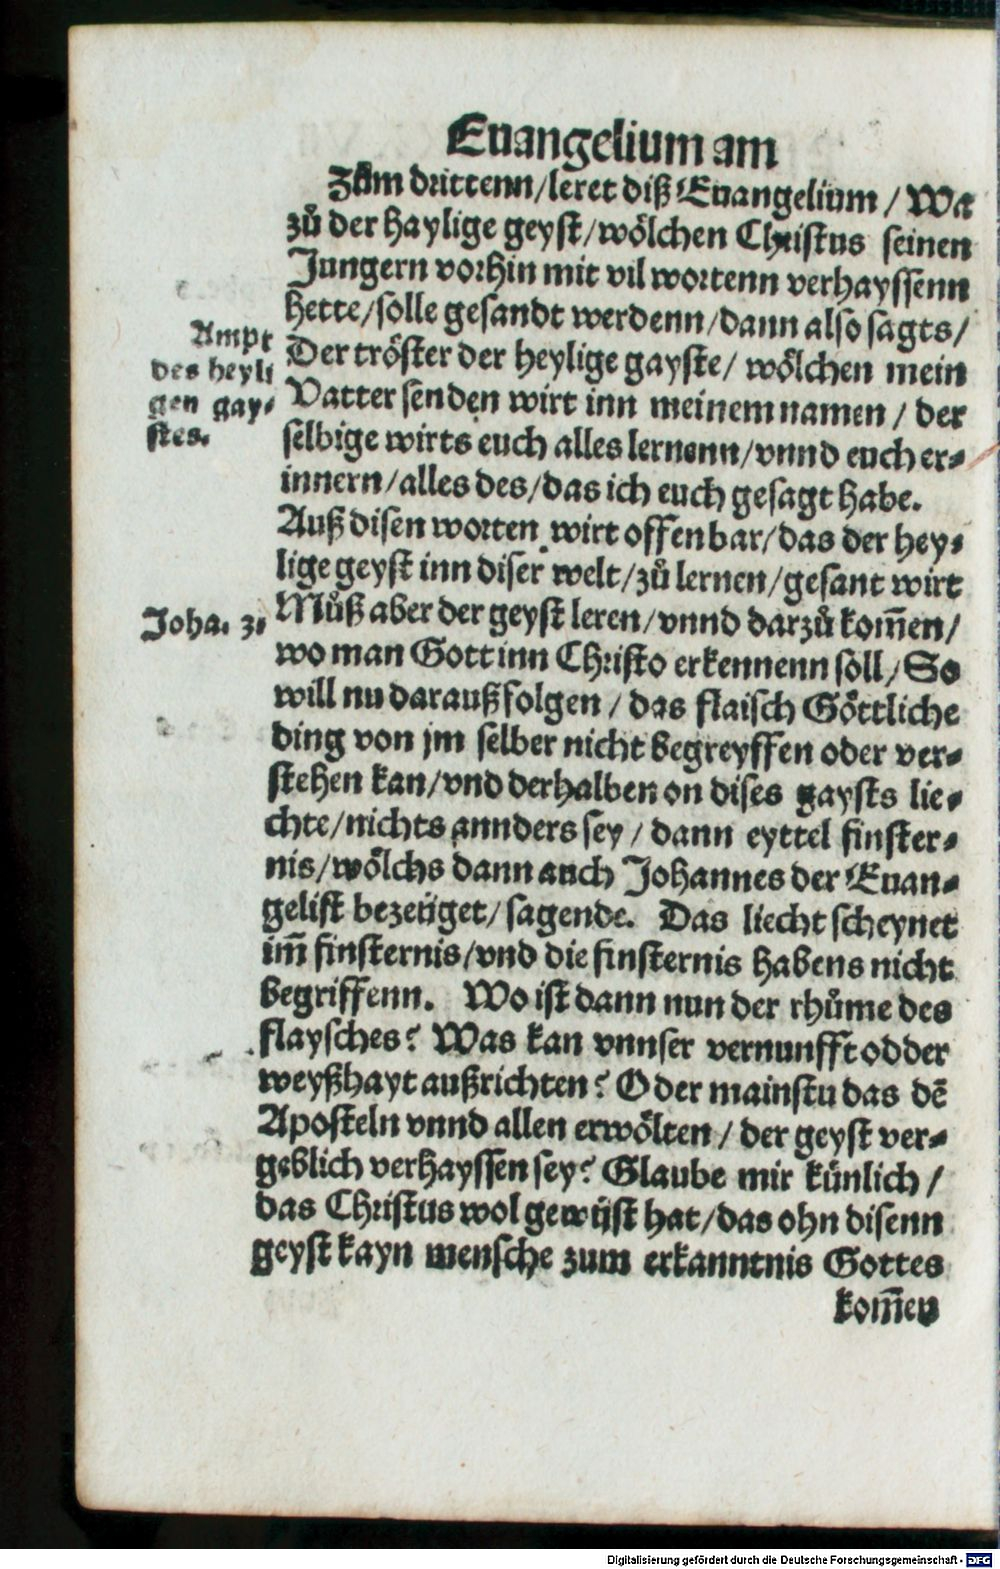 Euangelium am
Zům drittenn/leret diß Euangelium / Wa
zů der haylige geyst/wölchen Christus seinen
Jungern vorhin mit vil wortenn verhayssenn
hette/solle gesandt werdenn/dann also sagts/
Ampt
des heyli
gen gay⸗
stes.
Der tröster der heylige gayste/ wölchen mein
Vatter senden wirt inn meinem namen / der
selbige wirts euch alles lernenn/vnnd euch er⸗
innern/alles des/das ich euch gesagt habe.
Auß disen worten wirt offenbar/das der hey⸗
lige geyst inn diser welt/zů lernen/gesant wirt
Joha. 3.
Můß aber der geyst leren/vnnd darzů kom̃en/
wo man Gott inn Christo erkennenn soll/So
will nu darauß folgen / das flaisch Göttliche
ding von jm selber nicht begreyffen oder ver⸗
stehen kan/vnd derhalben on dises gaysts lie⸗
chte/nichts annders sey / dann eyttel finster⸗
nis/wölchs dann auch Johannes der Euan⸗
gelist bezeüget/sagende. Das liecht scheynet
im̃ finsternis/vnd die finsternis habens nicht
begriffenn. Wo ist dann nun der rhůme des
flaysches? Was kan vnnser vernunfft odder
weyßhayt außrichten? Oder mainstu das dē
Aposteln vnnd allen erwölten / der geyst ver⸗
geblich verhayssen sey? Glaube mir künlich /
das Christus wol gewijst hat/das ohn disenn
geyst kayn mensche zum erkanntnis Gottes
kom̃en
Digitalisierung gefördert durch die Deutsche Forschungsgemeinschaft - DFG